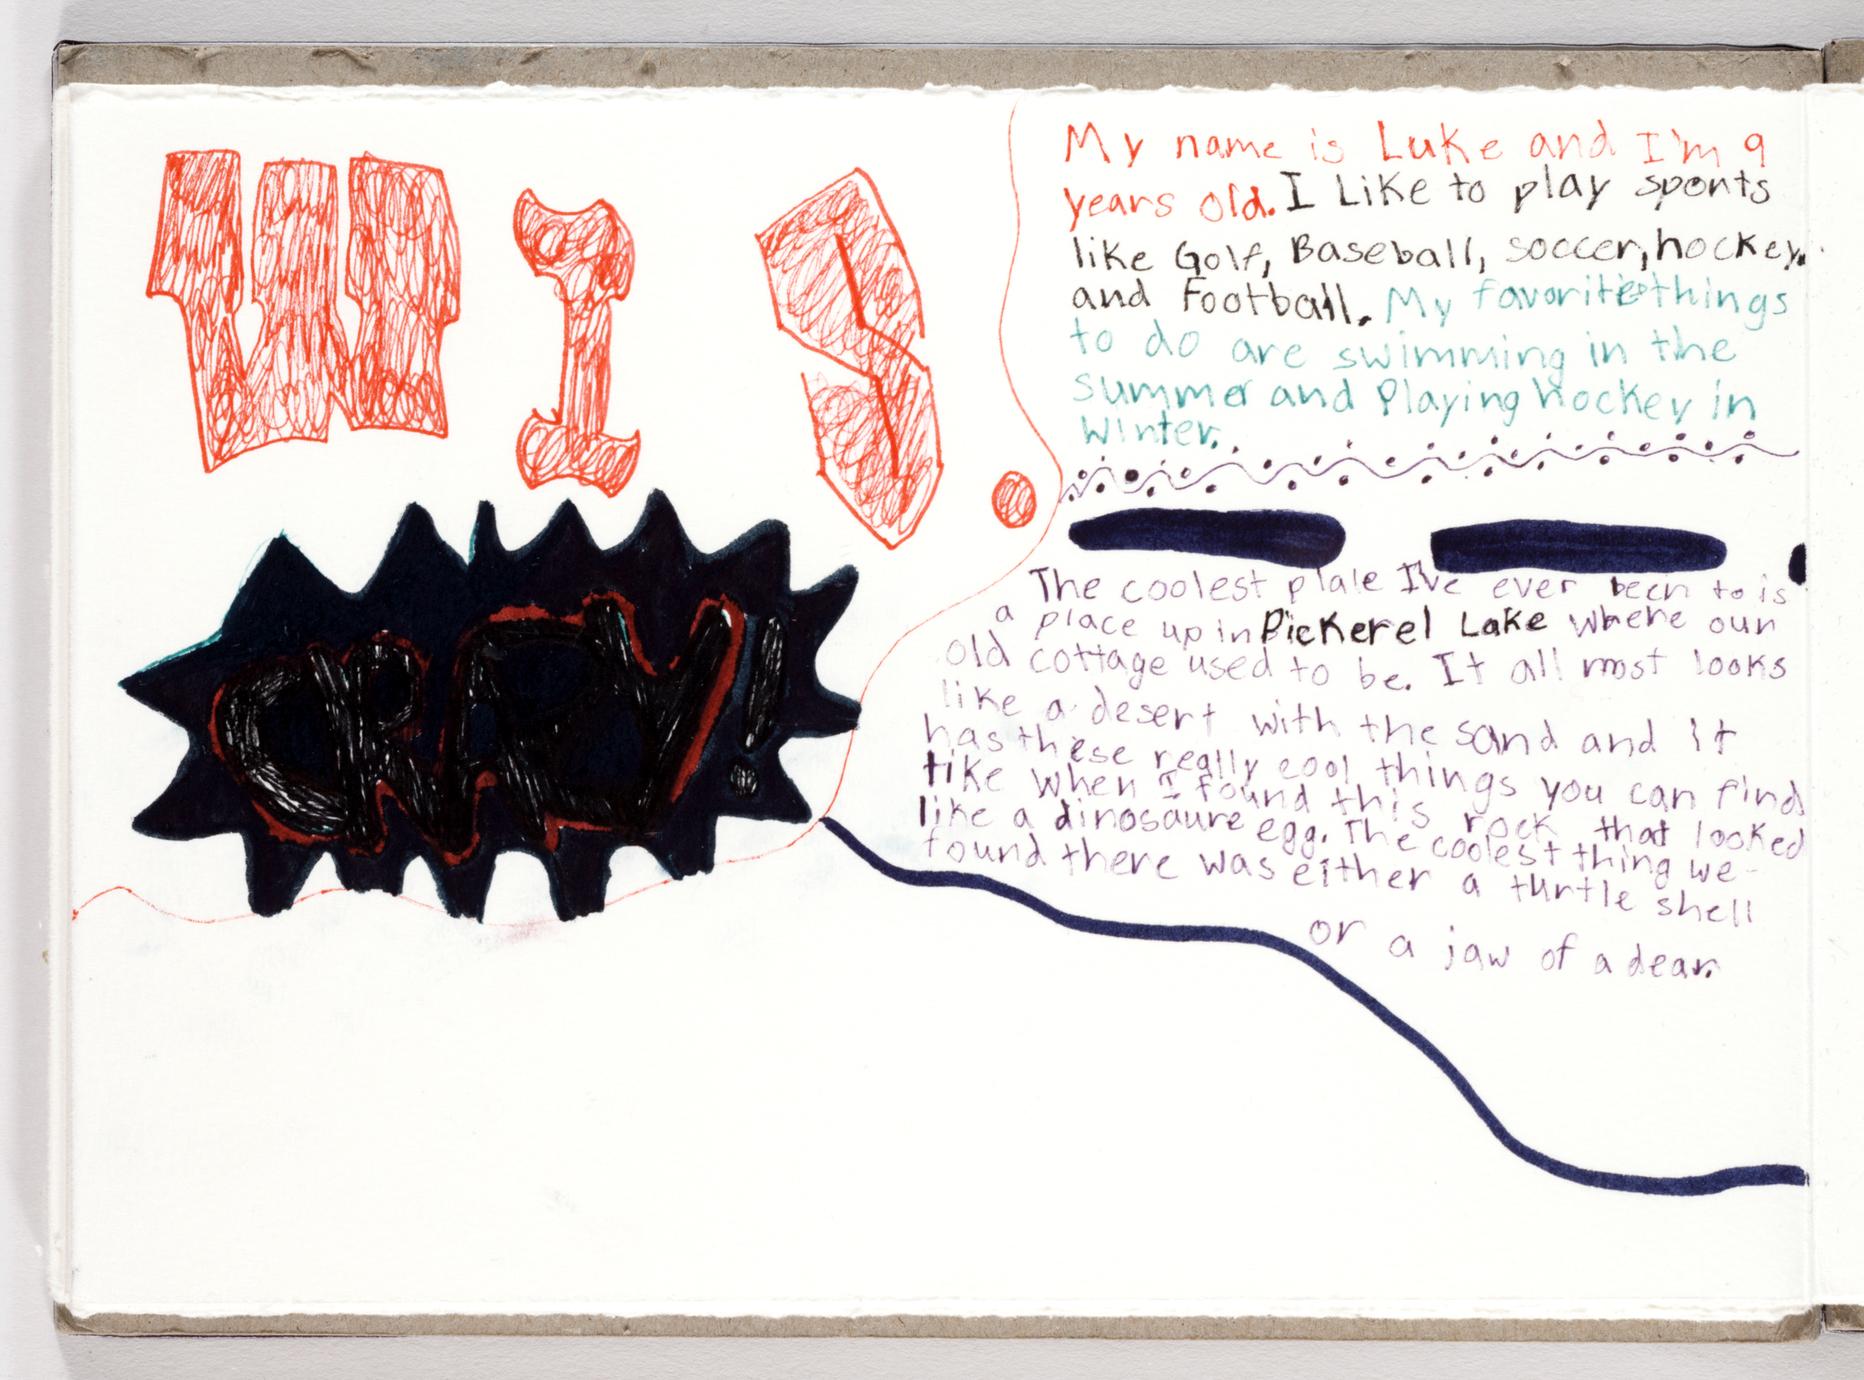 WIS.
CRAZY!
My name is Luke and I'm 9
years old. I Like to play sports
like Golf, Baseball, soccer, hockey.
and Football. My favorite things
to do are swimming in the
summer and Playing hockey in
winter.
The coolest plale I've ever been to is
a place up in Pickerel Lake where our
old cottage used to be. It all most looks
like a desert with the sand and it
has these really cool things you can find
like when I found this rock that looked
like a dinosaure egg. The coolest thing we
found there was either a turtle shell
or a jaw of a dear.